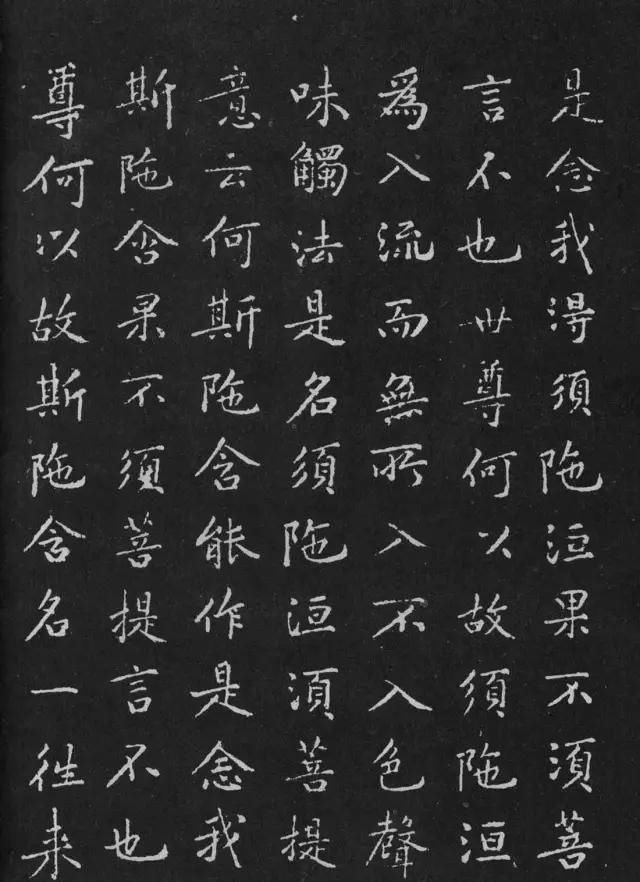 是念我得須陁洹果不須菩
言不也世尊何以故須陁洹
爲入流而無所入不入色聲
味觸法是名須陁洹須菩提
意云何斯陁含能作是念我
斯陁含果不須菩提言不也
尊何以故斯陁含名一往来